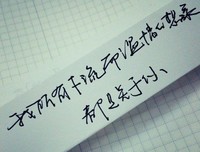 我所有下流而温情的想象
都是关于你、